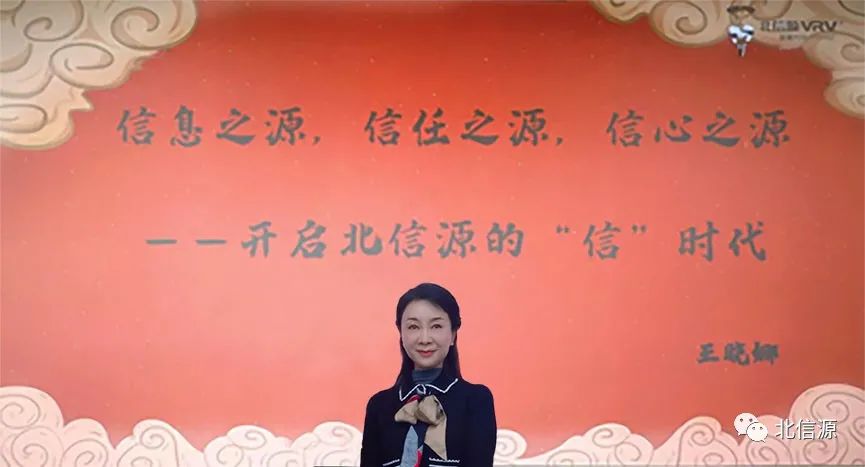 北信源VRV
信息之源，信任之源，信心之源
——开启北信源的“信”时代
王晓娜
北信源